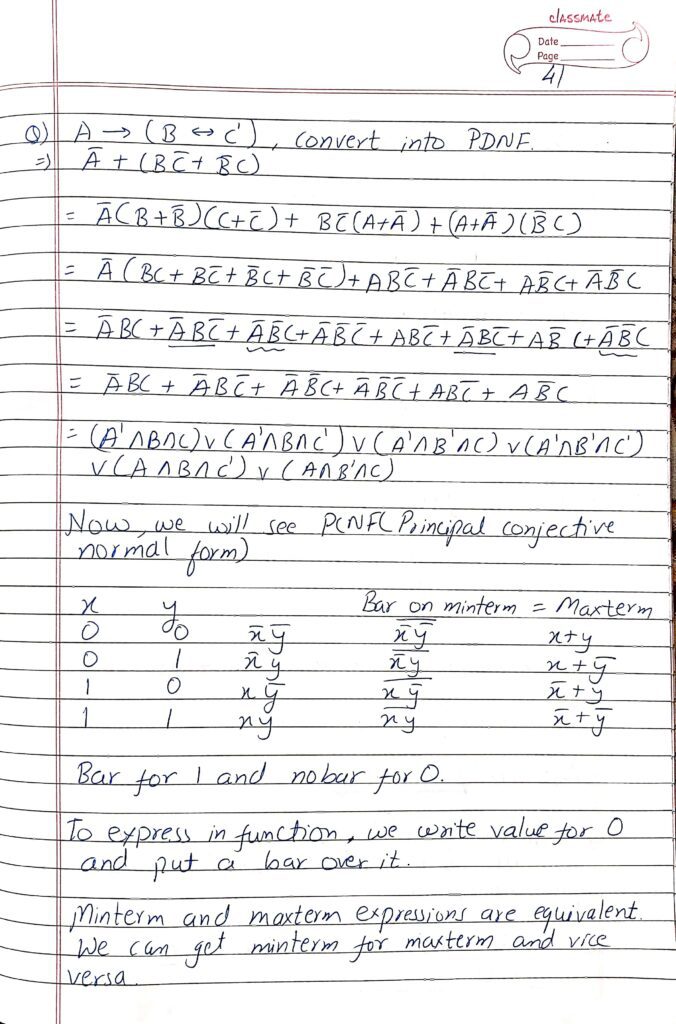 classmate
Date
Page
41
Q) A → (B ↔ C'), convert into PDNF.
=) Ā + (BC̄ + B̄C)
= Ā(B+B̄)(C+C̄) + BC̄(A+Ā) + (A+Ā)(B̄C)
= Ā(BC + BC̄ + B̄C + B̄C̄) + ABC̄ + ĀBC̄ + AB̄C + ĀB̄C
= ĀBC + ĀBC̄ + ĀB̄C + ĀB̄C̄ + ABC̄ + ĀBC̄ + AB̄C + ĀB̄C
= ĀBC + ĀBC̄ + ĀB̄C + ĀB̄C̄ + ABC̄ + AB̄C
= (A'∧B∧C) ∨ (A'∧B∧C') ∨ (A'∧B'∧C) ∨ (A'∧B'∧C')
∨ (A∧B∧C') ∨ (A∧B'∧C)
Now, we will see PCNF( Principal conjective
normal form)
x y Bar on minterm = Maxterm
0 0 x̄ȳ x̄ȳ̅ x+y
0 1 x̄y x̄y̅ x+ȳ
1 0 xȳ xȳ̅ x̄+y
1 1 xy x̅y̅ x̄+ȳ
Bar for 1 and no bar for 0.
To express in function, we write value for 0
and put a bar over it.
Minterm and maxterm expressions are equivalent.
We can get minterm for maxterm and vice
versa.